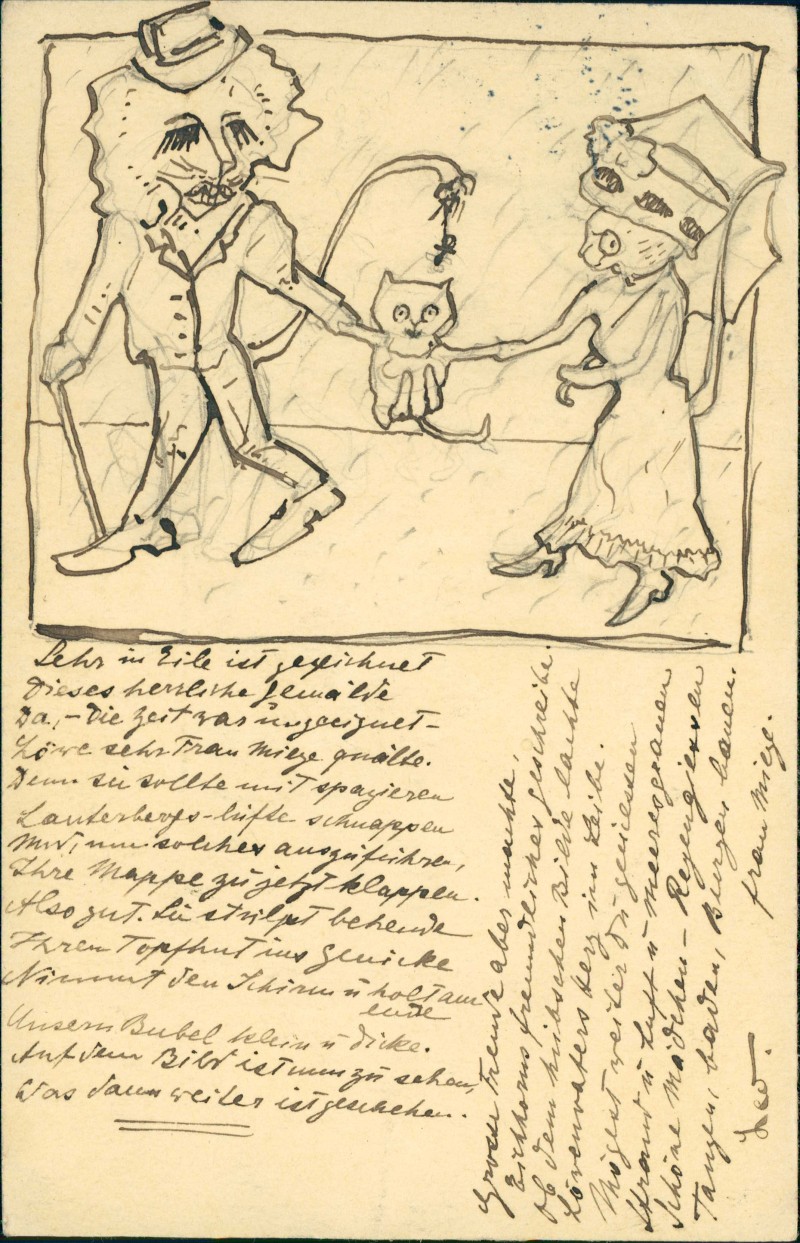 Sehr in Eile ist gezeichnet
Dieses herrliche Gemälde
Da, – die Zeit war ungeeignet –
Löwe sehr Frau Mieze quälte.
Denn sie sollte mit spazieren
Lauterbergs-lüfte schnappen
Und, um solches auszuführen,
Ihre Mappe zu jetzt klappen.
Also gut. Sie stülpt behende
Ihren Topfhut ins Genicke
Nimmt den Schirm u holt am
ende
Unsern Bubel klein u dicke.
Auf dem Bild ist nun zu sehen,
Was dann weiter ist geschehen.
Grosse Freude aber machte,
Eichhorns freundliches Geschreibe.
Ob dem hübschen Bilde lachte
Löwenvaters Herz im Leibe.
Mögest weiter Du geniessen
Strand u Luft u Meeresgrauen
Schöne Mädchen – Regengiessen
Tanzen, baden, Burgen bauen.
Leo.
Frau Mieze.